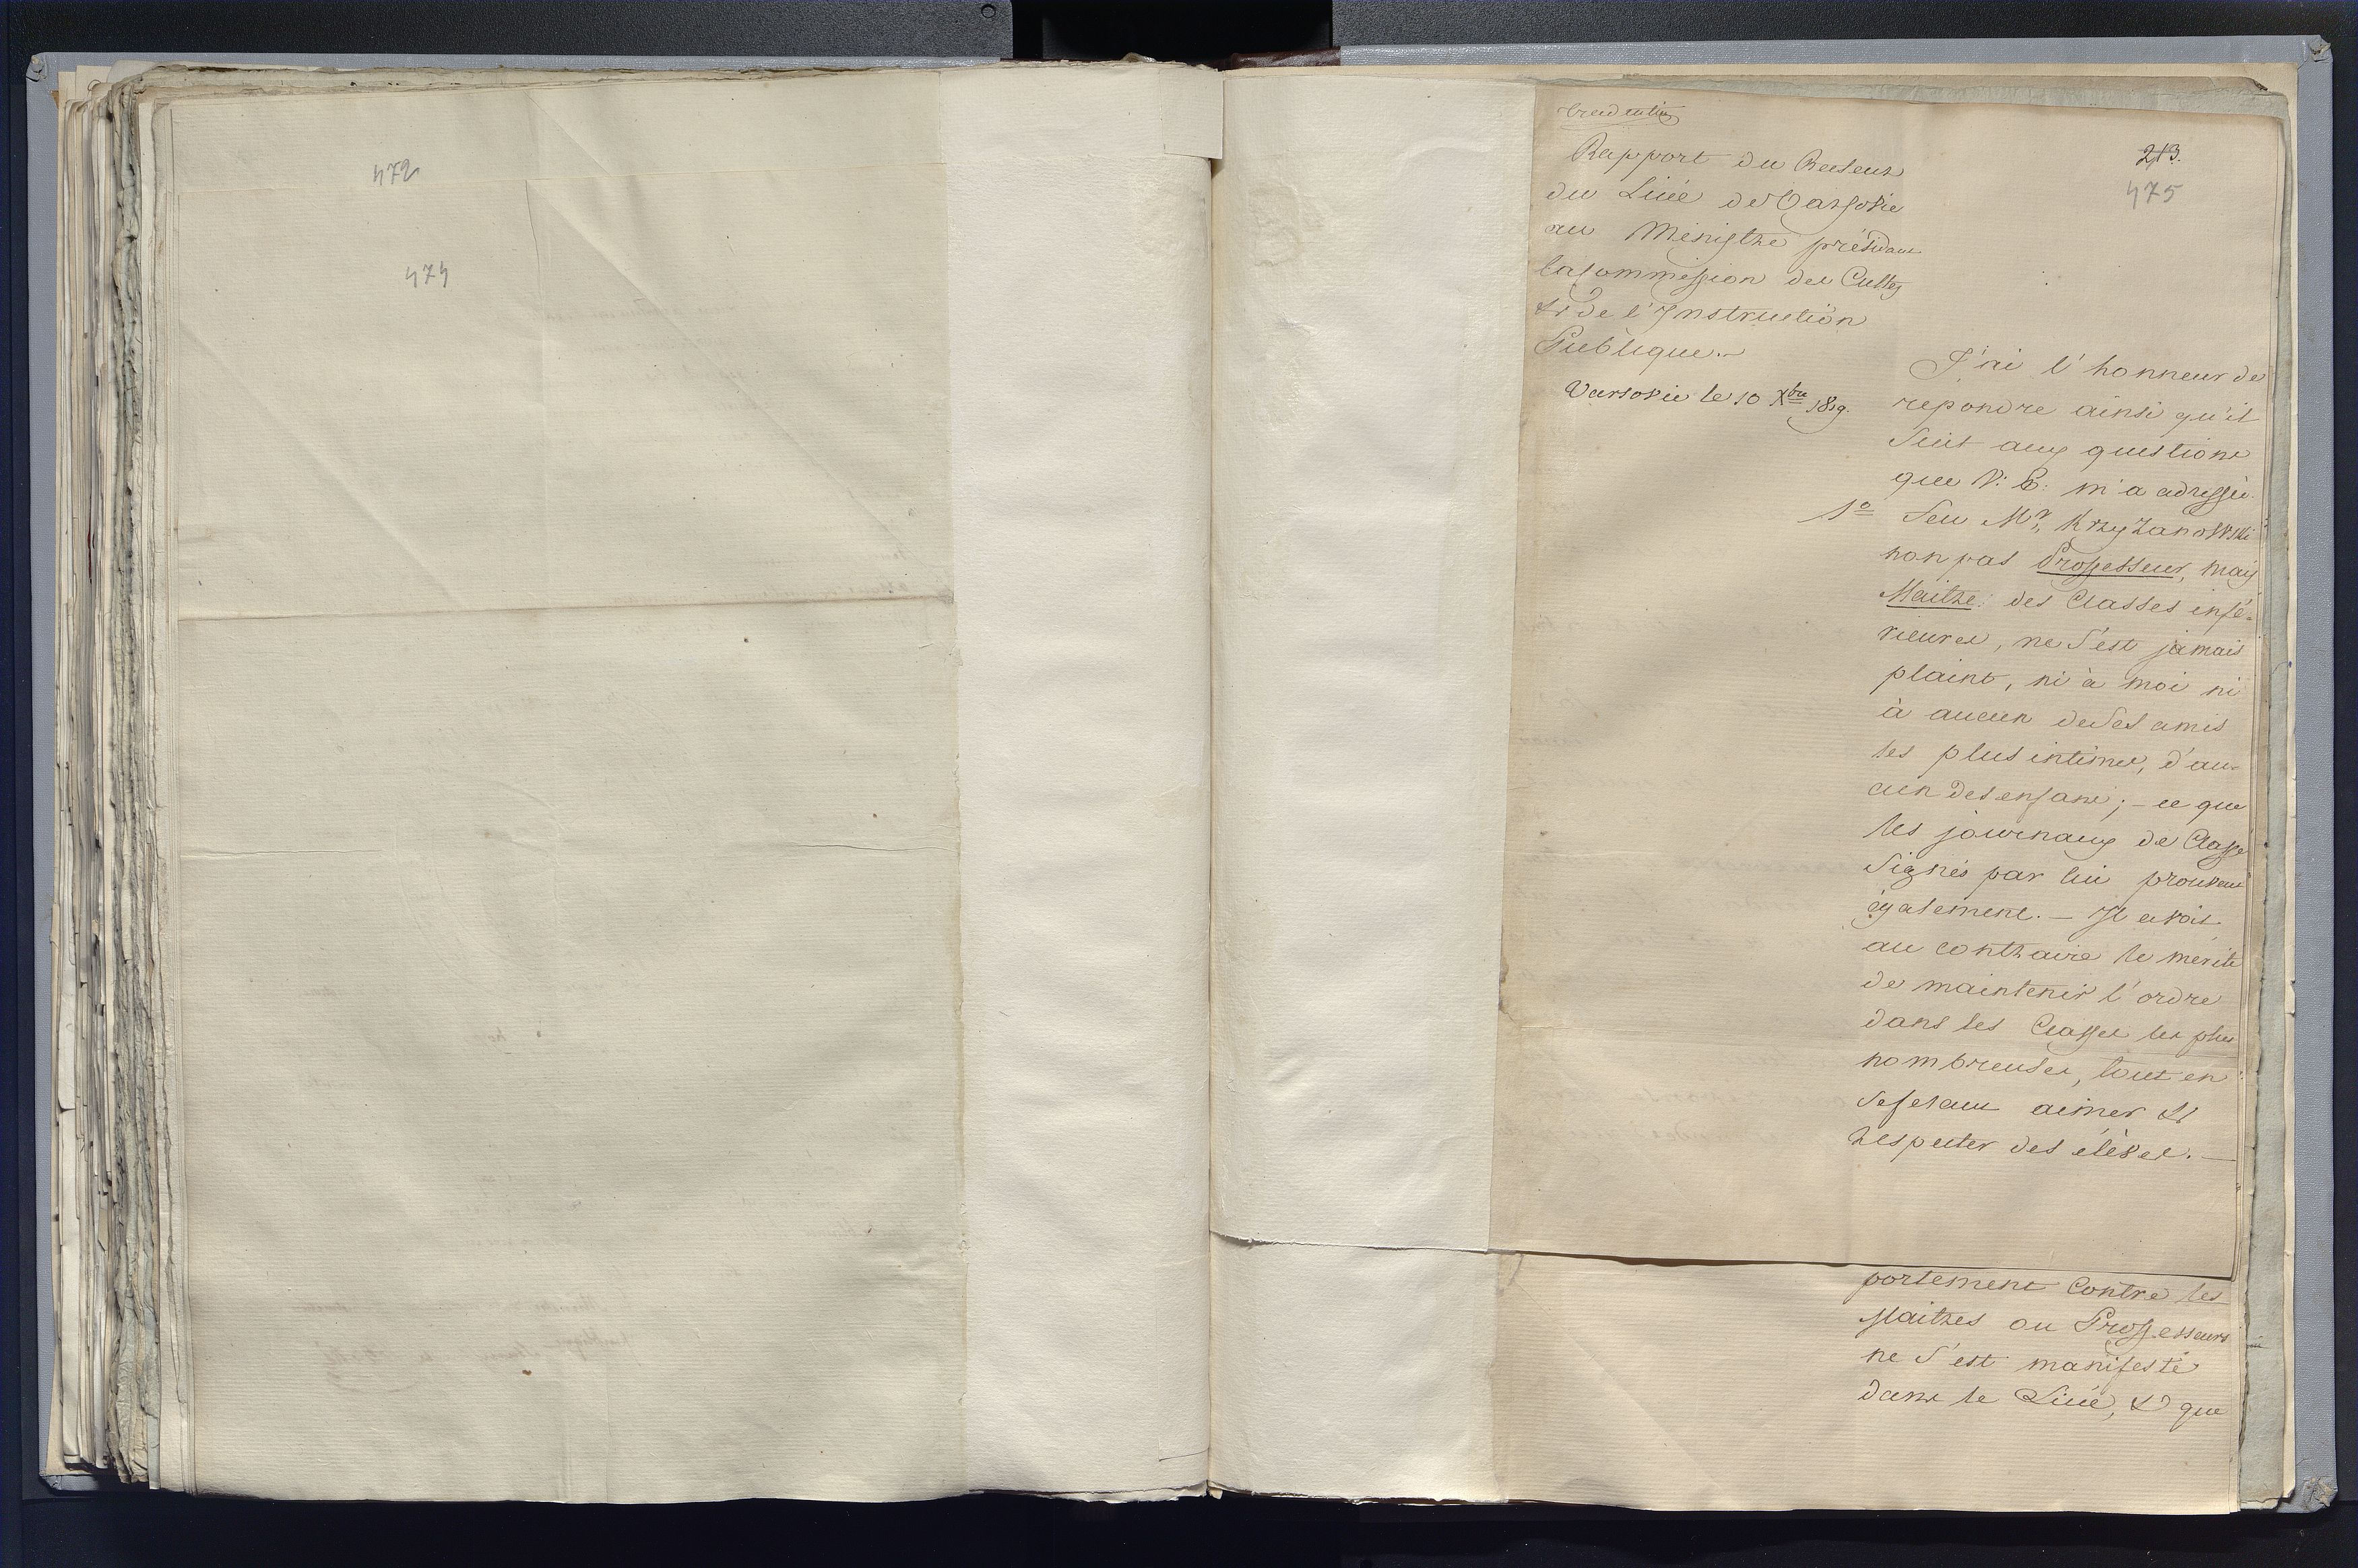 472
474
Traduction
213.
475
Rapport du Recteur
du Licée de Varsovie
au Ministre présidant
la Commission des Cultes
& de l'Instruction
Publique.-
Varsovie le 10 Xbre 1819.
J'ai l'honneur de
repondre ainsi qu'il
suit aux questions
que V: E: m'a adressées.
1o feu Mr. Krzyżanowski
non pas Professeur, mais
Maitre des Classes infé-
rieures, ne s'est jamais
plaint, ni à moi ni
à aucun de ses amis
les plus intimes, d'au-
cun des enfans; - ce que
les journaux de Classe
signés par lui prouvent
égalemenc. - Il avoit
au contraire le merite
de maintenir l'ordre
dans les Classes les plus
nombreuses, tout en
se fesant aimer &
respecter des élèves. -
portement contre les
Maitres ou Professeurs
ne s'est manifesté
dans le Licée, & que